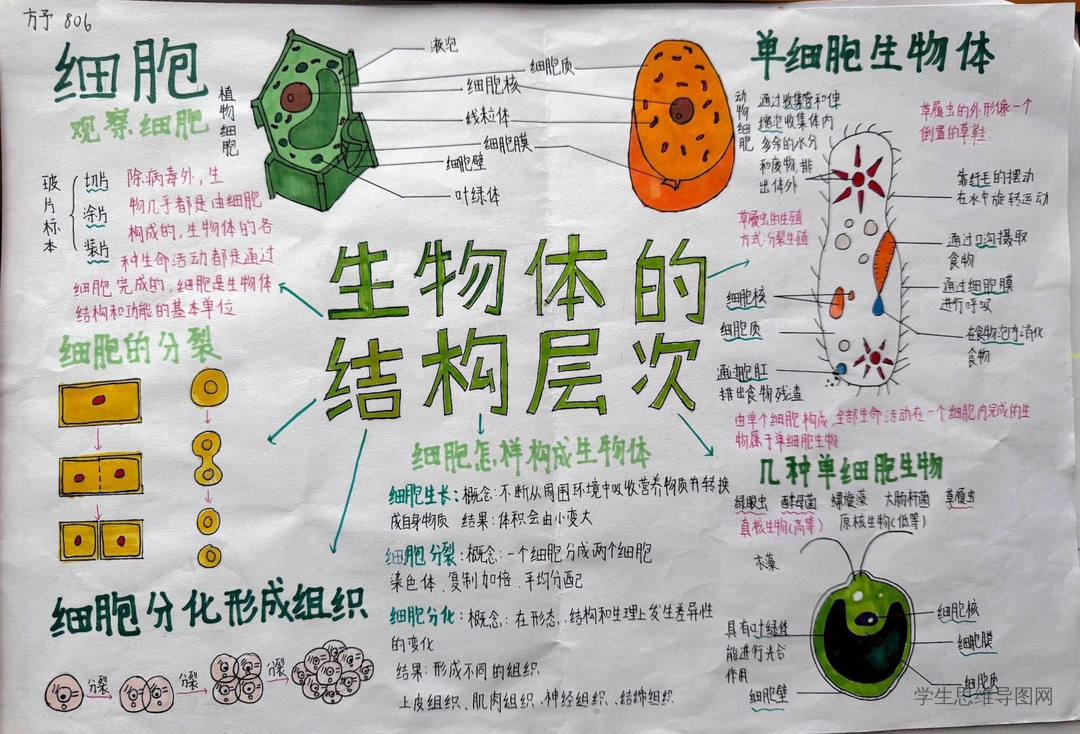 方予 806
细胞
观察细胞
植物细胞
玻片标本
切片
涂片
装片
除病毒外，生
物几乎都是由细胞
构成的，生物体的各
种生命活动都是通过
细胞完成的，细胞是生物体
结构和功能的基本单位
液泡
细胞质
细胞核
线粒体
细胞膜
细胞壁
叶绿体
动物细胞
单细胞生物体
通过收集管和伸
缩泡收集体内
多余的水分
和废物，排
出体外
草履虫的外形像一个
倒置的草鞋
靠纤毛的摆动
在水中旋转运动
草履虫的生殖
方式：分裂生殖
通过口沟摄取
食物
通过细胞膜
进行呼吸
细胞核
细胞质
在食物泡内消化
食物
通过胞肛
排出食物残渣
由单个细胞构成，全部生命活动在一个细胞内完成的生
物属于单细胞生物
生物体的
结构层次
细胞的分裂
细胞怎样构成生物体
细胞生长：概念：不断从周围环境中吸收营养物质并转换
成自身物质 结果：体积会由小变大
细胞分裂：概念：一个细胞分成两个细胞
染色体、复制加倍、平均分配
细胞分化：概念：在形态、结构和生理上发生差异性
的变化
结果：形成不同的组织
上皮组织、肌肉组织、神经组织、结缔组织
细胞分化形成组织
分裂
分裂
分裂
几种单细胞生物
绿眼虫 酵母菌 螺旋藻 大肠杆菌 草履虫
真核生物(高等) 原核生物(低等)
衣藻
具有叶绿体
能进行光合
作用
细胞壁
细胞核
细胞膜
细胞质
学生思维导图网